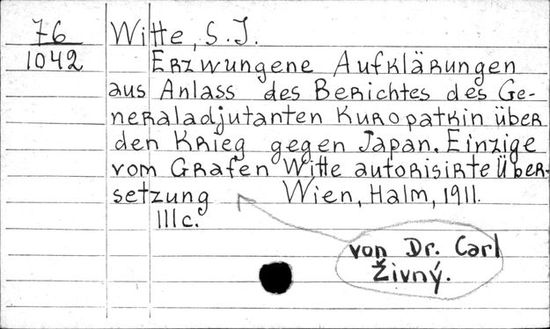 76
1042
Witte, S.J.
Erzwungene Aufklärungen
aus Anlass des Berichtes des Ge-
neraladjutanten Kuropatkin über
den Krieg gegen Japan. Einzige
vom Grafen Witte autorisirte Über-
setzung Wien, Halm, 1911.
IIIc.
von Dr. Carl
Živný.